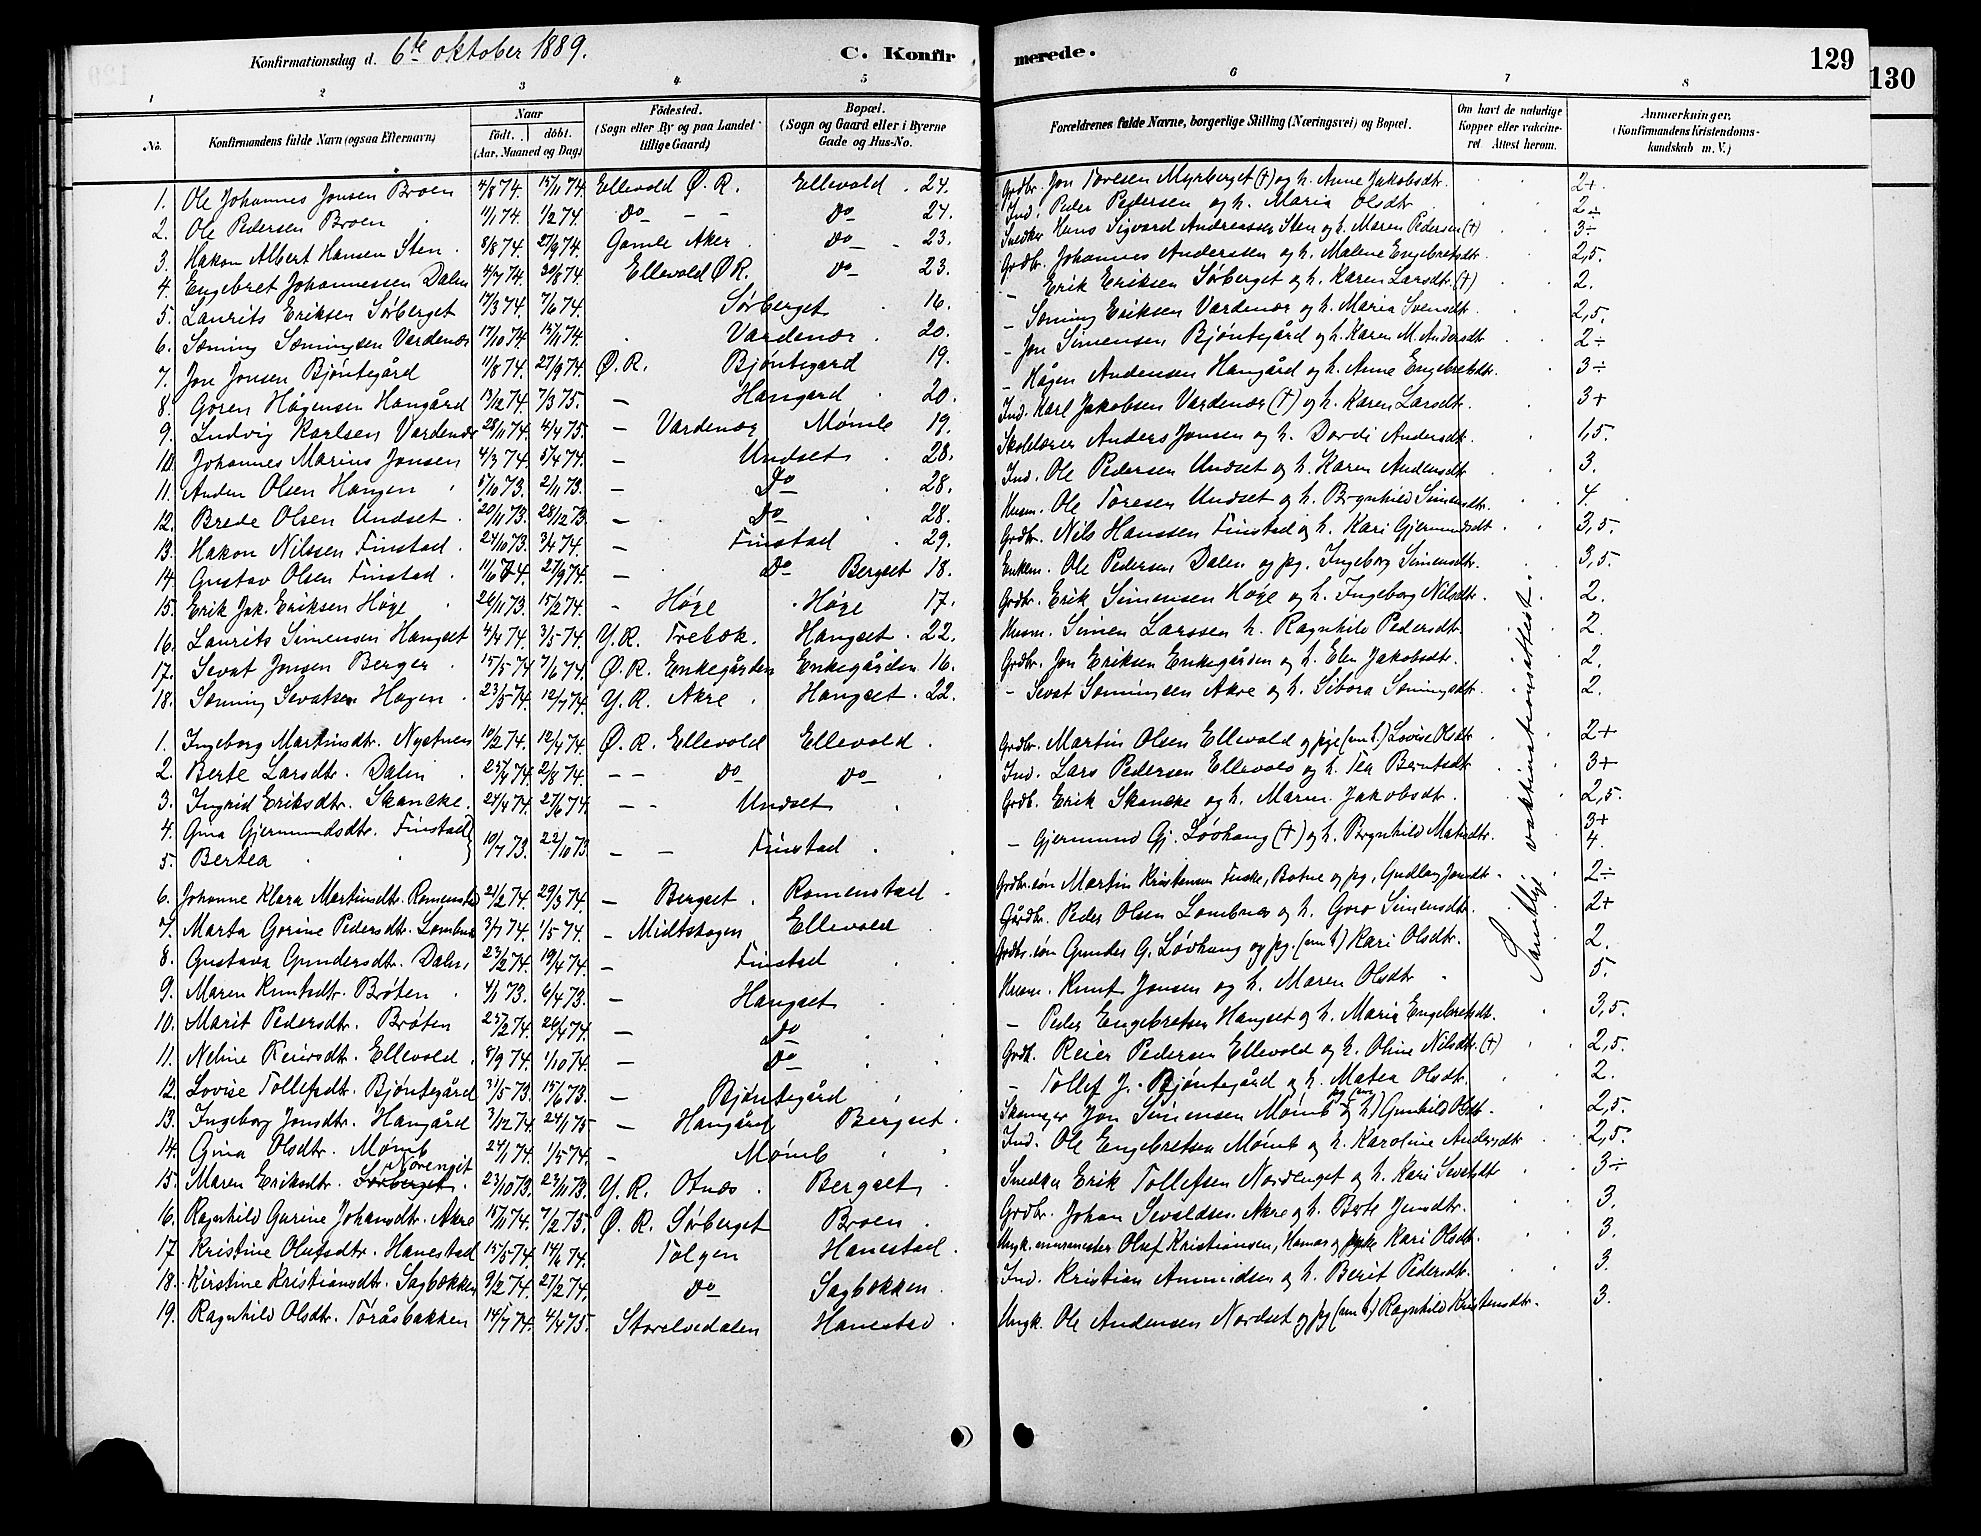 Konfirmationsdag d. 6te oktober 1889. C. Konfirmerede. 129
130
1 2 3 4 5 6 7 8
No. Konfirmandens fulde Navn (ogsaa Efternavn) Naar födt. döbt. (Aar, Maaned og Dag) Födested. (Sogn eller By og paa Landet tillige Gaard) Bopæl. (Sogn og Gaard eller i Byerne Gade og Hus-No. Forældrenes fulde Navne, borgerlige Stilling (Næringsvei) og Bopæl. Om havt de naturlige Kopper eller vakcineret. Attest herom. Anmærkninger. (Konfirmandens Kristendomskundskab m. V.)
1. Ole Johannes Jonsen Broen 4/8 74. 15/11 74. Ellevold Ø. R. Ellevold. 24. Grdbr. Jon Toresen Myrberget (+) og h. Anne Jakobsdtr. 2+.
2. Ole Pedersen Broen 1/1 74. 1/2 74. Do - - Do 24. Ind. Peder Pedersen og h. Maria Olsdtr. 2÷
3. Hakon Albert Hansen Sten. 8/8 74. 27/9 74. Gamle Aker. Do 23. Snedker Hans Sigvard Andreassen Sten og h. Maren Pedersen (+) 3÷
4. Engebret Johannessen Dalen 4/7 74. 30/8 74. Ellevold Ø R. Do 23. Grdbr. Johannes Anderssen og h. Malene Engebretsdtr. 2,5.
5. Laurits Eriksen Sørberget 17/3 74. 7/6 74. Sørberget 16. - Erik Eriksen Sørberget og h. Karen Larsdtr. (+) 2.
6. Sæming Sæmingsen Vardenær 17/10 74. 15/11 74. Vardenær. 20. - Sæming Eriksen Vardenær og h. Maria Svensdtr. 2,5.
7. Jon Jonsen Bjøntegård 11/8 74. 27/9 74. Ø. R. Bjøntegard 19. - Jon Simensen Bjøntegård og h. Karen M. Andersdtr. 2÷
8. Goren Hågensen Hangård 13/12 74. 7/3 75. - Hangard 20. - Hågen Andersen Hangård og h. Anne Engebretsdtr. 3÷
9. Ludvig Karlsen Vardenær 28/11 74. 4/4 75. - Vardenær Mømle 19. Ind. Karl Jakobsen Vardenær (+) og h. Karen Larsdtr. 3+
10. Johannes Marius Jonsen 4/3 74. 5/4 74. - Undset 28. Skolelærer Anders Jonsen og h. Dordi Andersdtr. 1,5.
11. Anders Olsen Haugen 5/10 73. 2/11 73. - Do 28. Ind. Ole Pedersen Undset og h. Karen Andersdtr. 3.
12. Brede Olsen Undset. 20/11 73. 28/12 73. - Do 28. Husm. Ole Toresen Undset og h. Brynhild Simensdtr. 4.
13. Hakon Nilssen Finstad. 24/10 73. 3/4 74. - Finstad 29. Grdbr. Nils Hanssen Finstad og h. Kari Gjermundsdtr. 3,5.
14. Gustav Olsen Finstad. 11/6 74. 27/9 74. - Do Bergset 18. Enkem. Ole Pedersen Dalen og pg. Ingeborg Simensdtr. 3,5.
15. Erik Jak. Eriksen Høge 26/11 73. 15/2 74. - Høge Høge 17. Grdbr. Erik Simensen Høge og h. Ingeborg Nilsdtr. 2.
16. Laurits Simensen Hangset 4/4 74. 3/5 74. Y. R. Trebæk. Hangset. 22. Husm. Simen Larssen h. Ragnhild Pedersdtr. 2.
17. Sevat Jonsen Berger. 15/5 74. 7/6 74. Ø. R. Enkegården Enkegården 16. Grdbr. Jon Eriksen Enkegården og h. Elen Jakobsdtr. 2.
18. Sæming Sevatsen Hagen. 23/5 74. 12/7 74. Y. R. Akre. Hangset. 22. - Sevat Sæmingsen Akre og h. Sibora Sæmingsdtr. 2.
1. Ingeborg Martinsdtr. Nystuen 10/2 74. 12/4 74. Ø. R. Ellevold Ellevold. Grdbr. Martin Olsen Ellevold og pige (nu h.) Lovise Olsdtr 2+
2. Berte Larsdtr. Dalen 25/4 74. 2/8 74. - - Do Do Ind. Lars Pedersen Ellevold og h. Tea Berntsdtr 3+
3. Ingrid Eriksdtr. Skancke. 24/4 74. 27/6 74. - - Undset Grdb. Erik Skancke og h. Maren Jakobsdtr. 2,5.
4. Gina Gjermundsdtr. Finstad 10/7 73. 22/10 73. - - Finstad. - Gjermund Gj. Løvhaug (+) og h. Brynhild Matsdtr. 3+
5. Bertea 4.
6. Johanne Klara Martinsdtr. Romenstad 21/2 74. 29/3 74. - Bergset. Romenstad. Grdbr.søn Martin Kristensen Fuske, Botne og pg. Gudlaug Jonsdtr. 2÷
7. Marta Gorine Pedersdtr. Lombnæs 3/4 74. 1/5 74. - Midtskogen Ellevold. Gårdbr. Peder Olsen Lombnæs og h. Goro Simensdtr. 2+
8. Gustava Gundersdtr. Dalen, 23/2 74. 19/4 74. - Finstad Grdbr.søn Gunder G. Løvhaug og pg. (nu h) Kari Olsdtr. 2.
9. Maren Knutsdtr. Brøten. 4/1 73. 6/4 73. - Hangset Husm. Knut Jonsen og h. Maren Olsdtr 5.
10. Marit Pedersdtr. Brøten 25/2 74. 26/4 74. - Do - Peder Engebretsen Hangset og h. Maria Engebretsdt. 3,5.
11. Neline Reiersdtr. Ellevold. 8/9 74. 1/10 74. - Do Grdb. Reier Pedersen Ellevold og h. Oline Nilsdtr. (+) 2,5.
12. Lovise Tollefsdt. Bjøntegård 31/5 73. 15/6 73. - Bjøntegård - Tollef J. Bjøntegård og h. Matea Olsdt. 2.
13. Ingeborg Jonsdtr. Hangård 3/12 74. 24/1 75. - Hangård Bergset. Skomager Jon Simensen Mømb pg (nu h) Gunhild Olsdt. 2,5.
14. Gina Olsdtr. Mømb 24/1 74. 1/5 74. - Mømb Ind. Ole Engebretsen Mømb og h. Karoline Andersdtr 2,5.
15. Maren Eriksdtr. Sørberget. Norenget 23/10 73. 23/11 73. Y. R. Otnes. Bergset. Snedker Erik Tollefsen Nordenget og h. Kari Sevatsdtr 3÷
16. Ragnhild Gurine Johansdtr. Akre 15/11 74. 7/2 75. Ø. R. Sørberget Broen. Grdbr. Johan Sevaldsen Akre og h. Berte Jensdtr. 3.
17. Kristine Olufsdtr. Hanestad 15/5 74. 14/6 74. Tolgen Hanestad. Ungk. murmester Oluf Kristiansen, Hamar og pige Kari Olsdt. 3.
18. Kirstine Kristiansdtr. Sagbækken 9/2 74. 27/2 74. Do Sagbækken. Ind. Kristian Amundsen og h. Berit Pedersdtr. 3.
19. Ragnhild Olsdtr. Toråsbakken 14/7 74. 4/4 75. Storelvedalen Hanestad. Ungk. Ole Andersen Nordset og pg (nu h.) Ragnhild Kristensdtr. 3.
Samtlige vaktinationsattest.